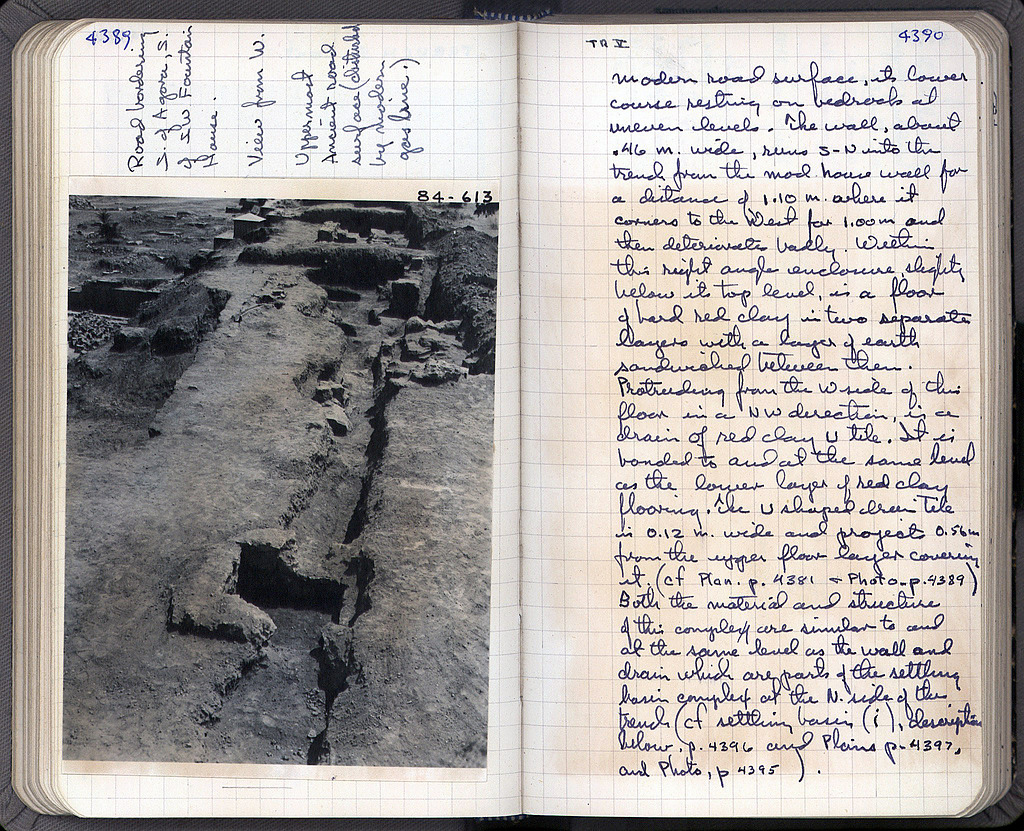 4389
Road bordering
S. of Agora, S.
of SW Fountain
House.
View from W.
Uppermost
Ancient road
surface (disturbed
by modern
gas line.)
84-613
TR V
4390
modern road surface, its lower
course resting on bedrock at
uneven levels. The wall, about
.46 m. wide, runs S-N into the
trench from the mod house wall for
a distance of 1.10 m. where it
corners to the West for 1.00 m and
then deteriorates badly. Within
this right angle enclosure, slightly
below its top level, is a floor
of hard red clay in two separate
layers with a layer of earth
sandwiched between them.
Protruding from the W side of this
floor in a NW direction, is a
drain of red clay U tile. It is
bonded to and at the same level
as the lower layer of red clay
flooring. The U shaped drain tile
is 0.12 m. wide and projects 0.56m
from the upper floor layer covering
it. (cf Plan. p. 4381 + Photo-p.4389)
Both the material and structure
of this complex are similar to and
at the same level as the wall and
drain which are parts of the settling
basin complex at the N. side of the
trench (cf settling basin (i), description
below, p. 4396 and Plans p-4397,
and Photo, p 4395).